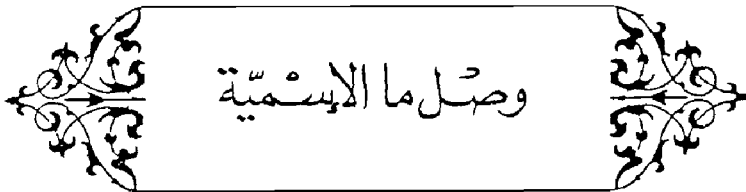 وصْل ما الإسْميّة